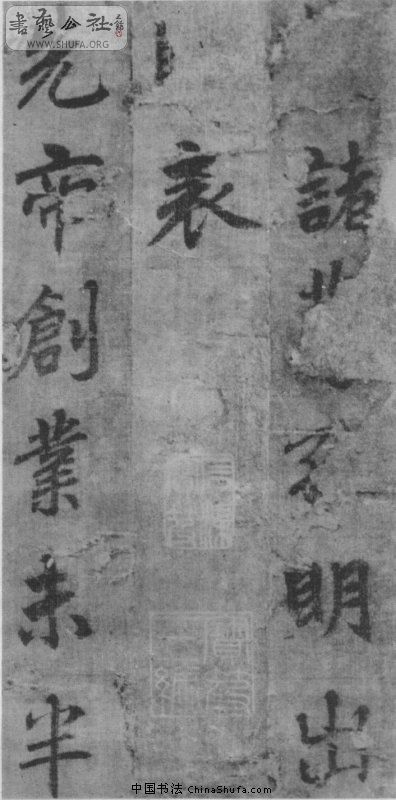 諸葛孔明出
表
先帝創業未半
書藝公社
WWW.SHUFA.ORG
中国书法 ChinaShufa.com